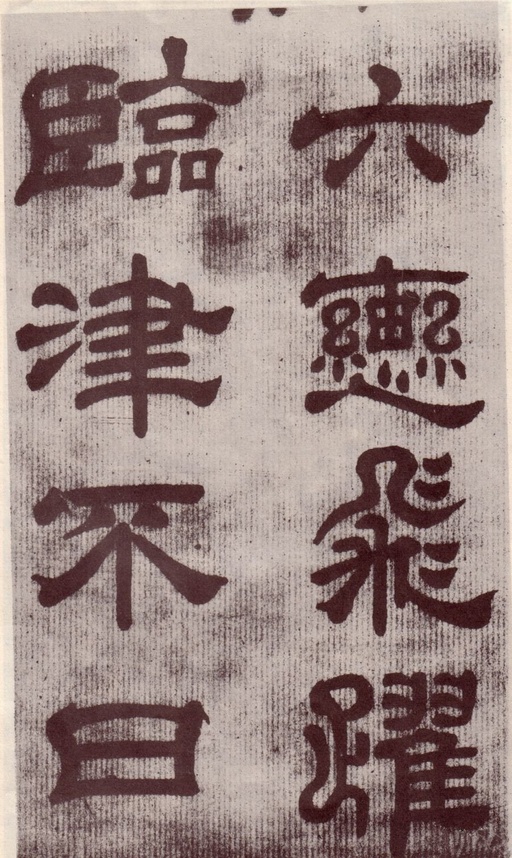 六轡飛躍
臨津不日